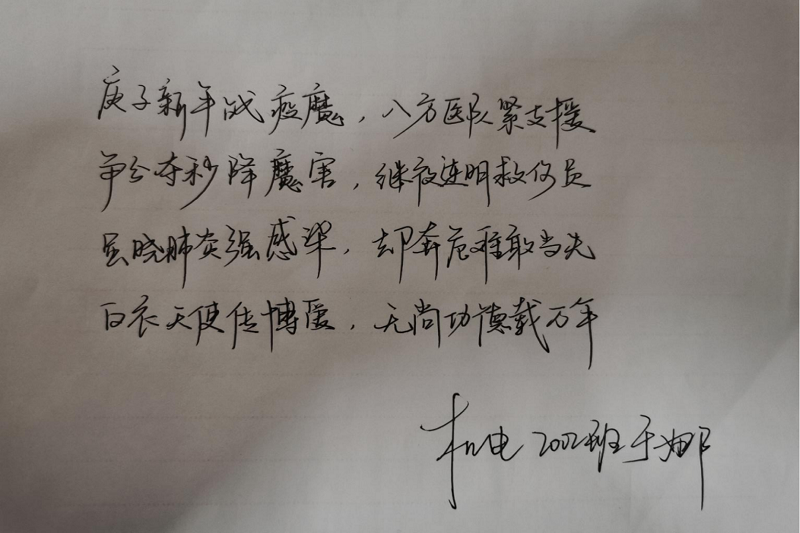 庚子新年战疫魔，八方医队紧支援
争分夺秒降魔害，继夜连明救伤员
虽晓肺炎强感染，却奔危难敢当先
白衣天使传博爱，无尚功德载万年
机电2002班于娜